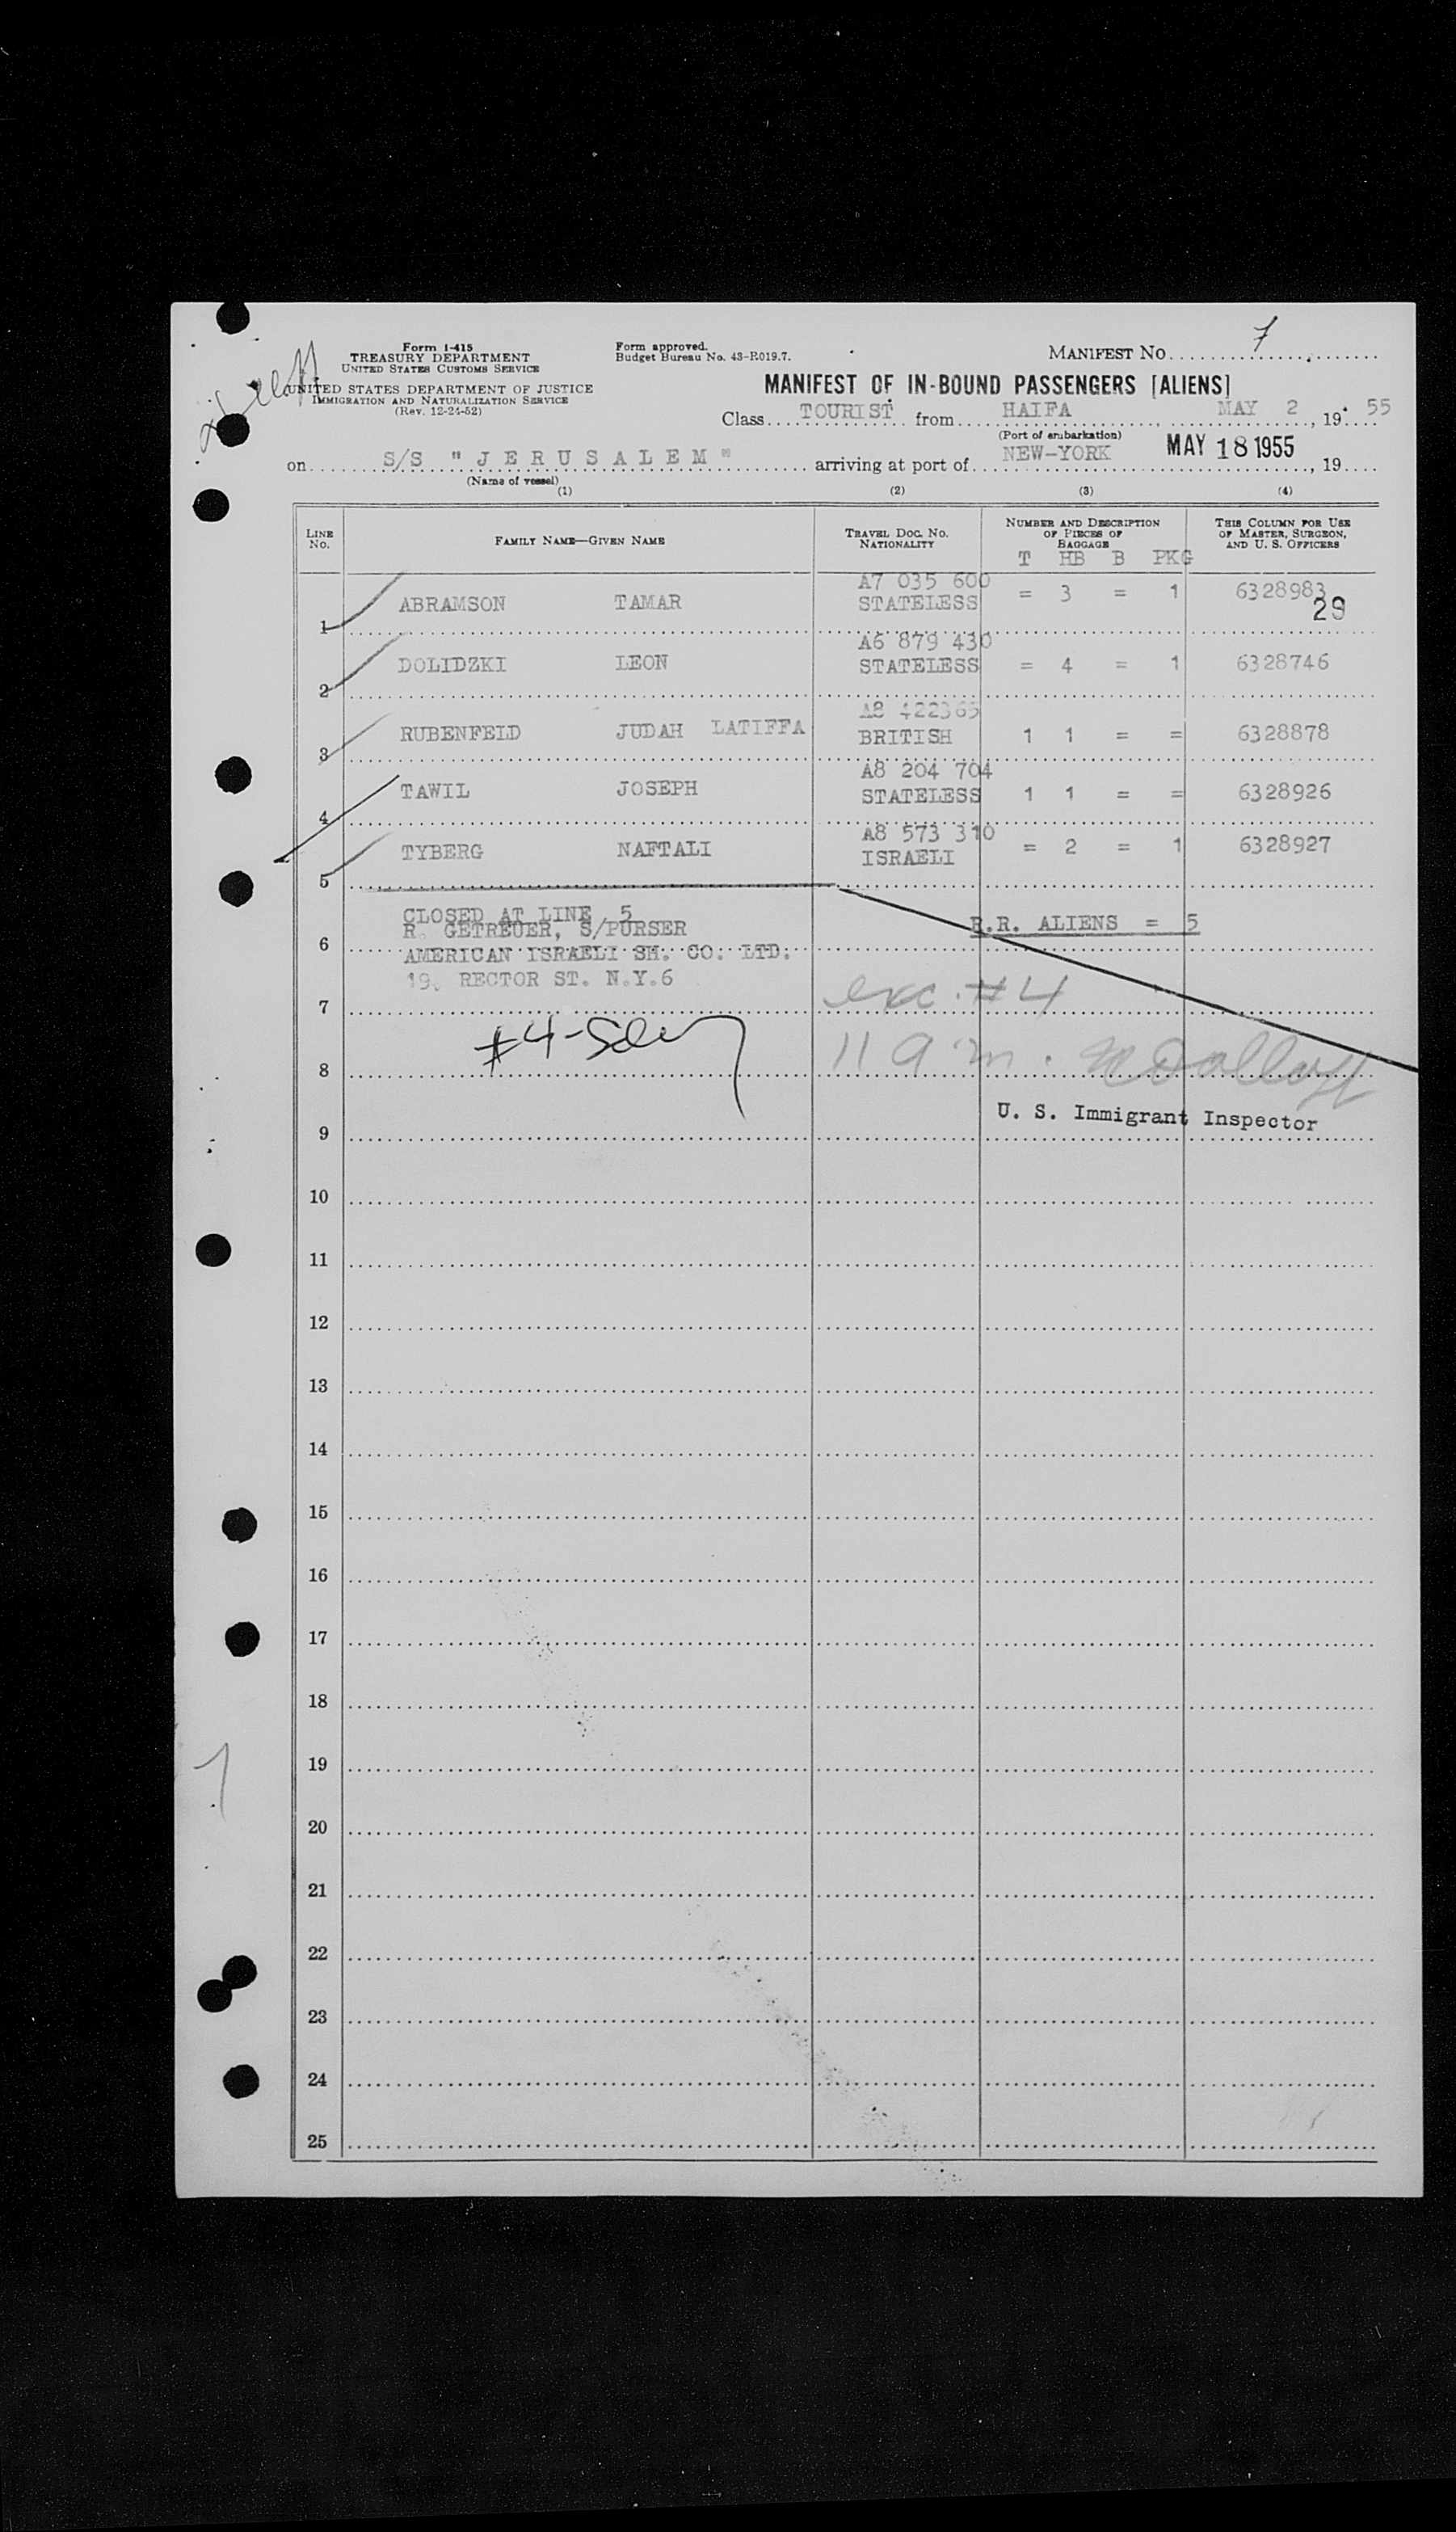 Form I-415
TREASURY DEPARTMENT
UNITED STATES CUSTOMS SERVICE
UNITED STATES DEPARTMENT OF JUSTICE
IMMIGRATION AND NATURALIZATION SERVICE
(Rev. 12-24-52)
Form approved.
Budget Bureau No. 43-R019.7.
MANIFEST NO. 7
MANIFEST OF IN-BOUND PASSENGERS [ALIENS]
Class TOURIST from HAIFA MAY 2, 19 55
(Port of embarkation)
on S/S "JERUSALEM" arriving at port of NEW-YORK MAY 18 1955, 19
(Name of vessel)
(1) (2) (3) (4)
LINE No. FAMILY NAME—GIVEN NAME TRAVEL DOC. NO. NATIONALITY NUMBER AND DESCRIPTION OF PIECES OF BAGGAGE THIS COLUMN FOR USE OF MASTER, SURGEON, AND U. S. OFFICERS
T HB B PKG
1 ABRAMSON TAMAR A7 035 600 STATELESS = 3 = 1 6328983 29
2 DOLIDZKI LEON A6 879 430 STATELESS = 4 = 1 6328746
3 RUBENFELD JUDAH LATIFFA A8 422365 BRITISH 1 1 = = 6328878
4 TAWIL JOSEPH A8 204 704 STATELESS 1 1 = = 6328926
5 TYBERG NAFTALI A8 573 310 ISRAELI = 2 = 1 6328927
CLOSED AT LINE 5
R. GETREUER, S/PURSER
R.R. ALIENS = 5
6 AMERICAN ISRAELI SH. CO. LTD.
19, RECTOR ST. N.Y.6
7 exc. #4
#4-
8 11 a.m.
U. S. Immigrant Inspector
9
10
11
12
13
14
15
16
17
18
19
20
21
22
23
24
25